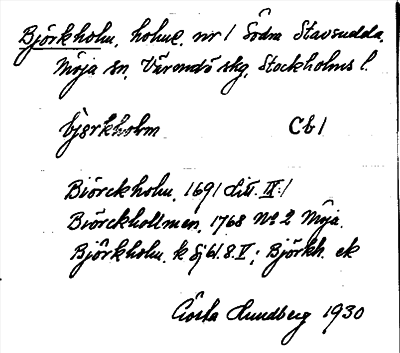 Björkholm, holme, nr 1 Södra Stavsudda,
Möja sn, Värmdö skg, Stockholms l.
bjǝrkholm Cb1
Biörckholm, 1691 Litt. IX:1
Biörckhollmen, 1768 No 2 Möja.
Björkholm, k Sj 61.8.V; Björkh. ek
Gösta Lundberg 1930